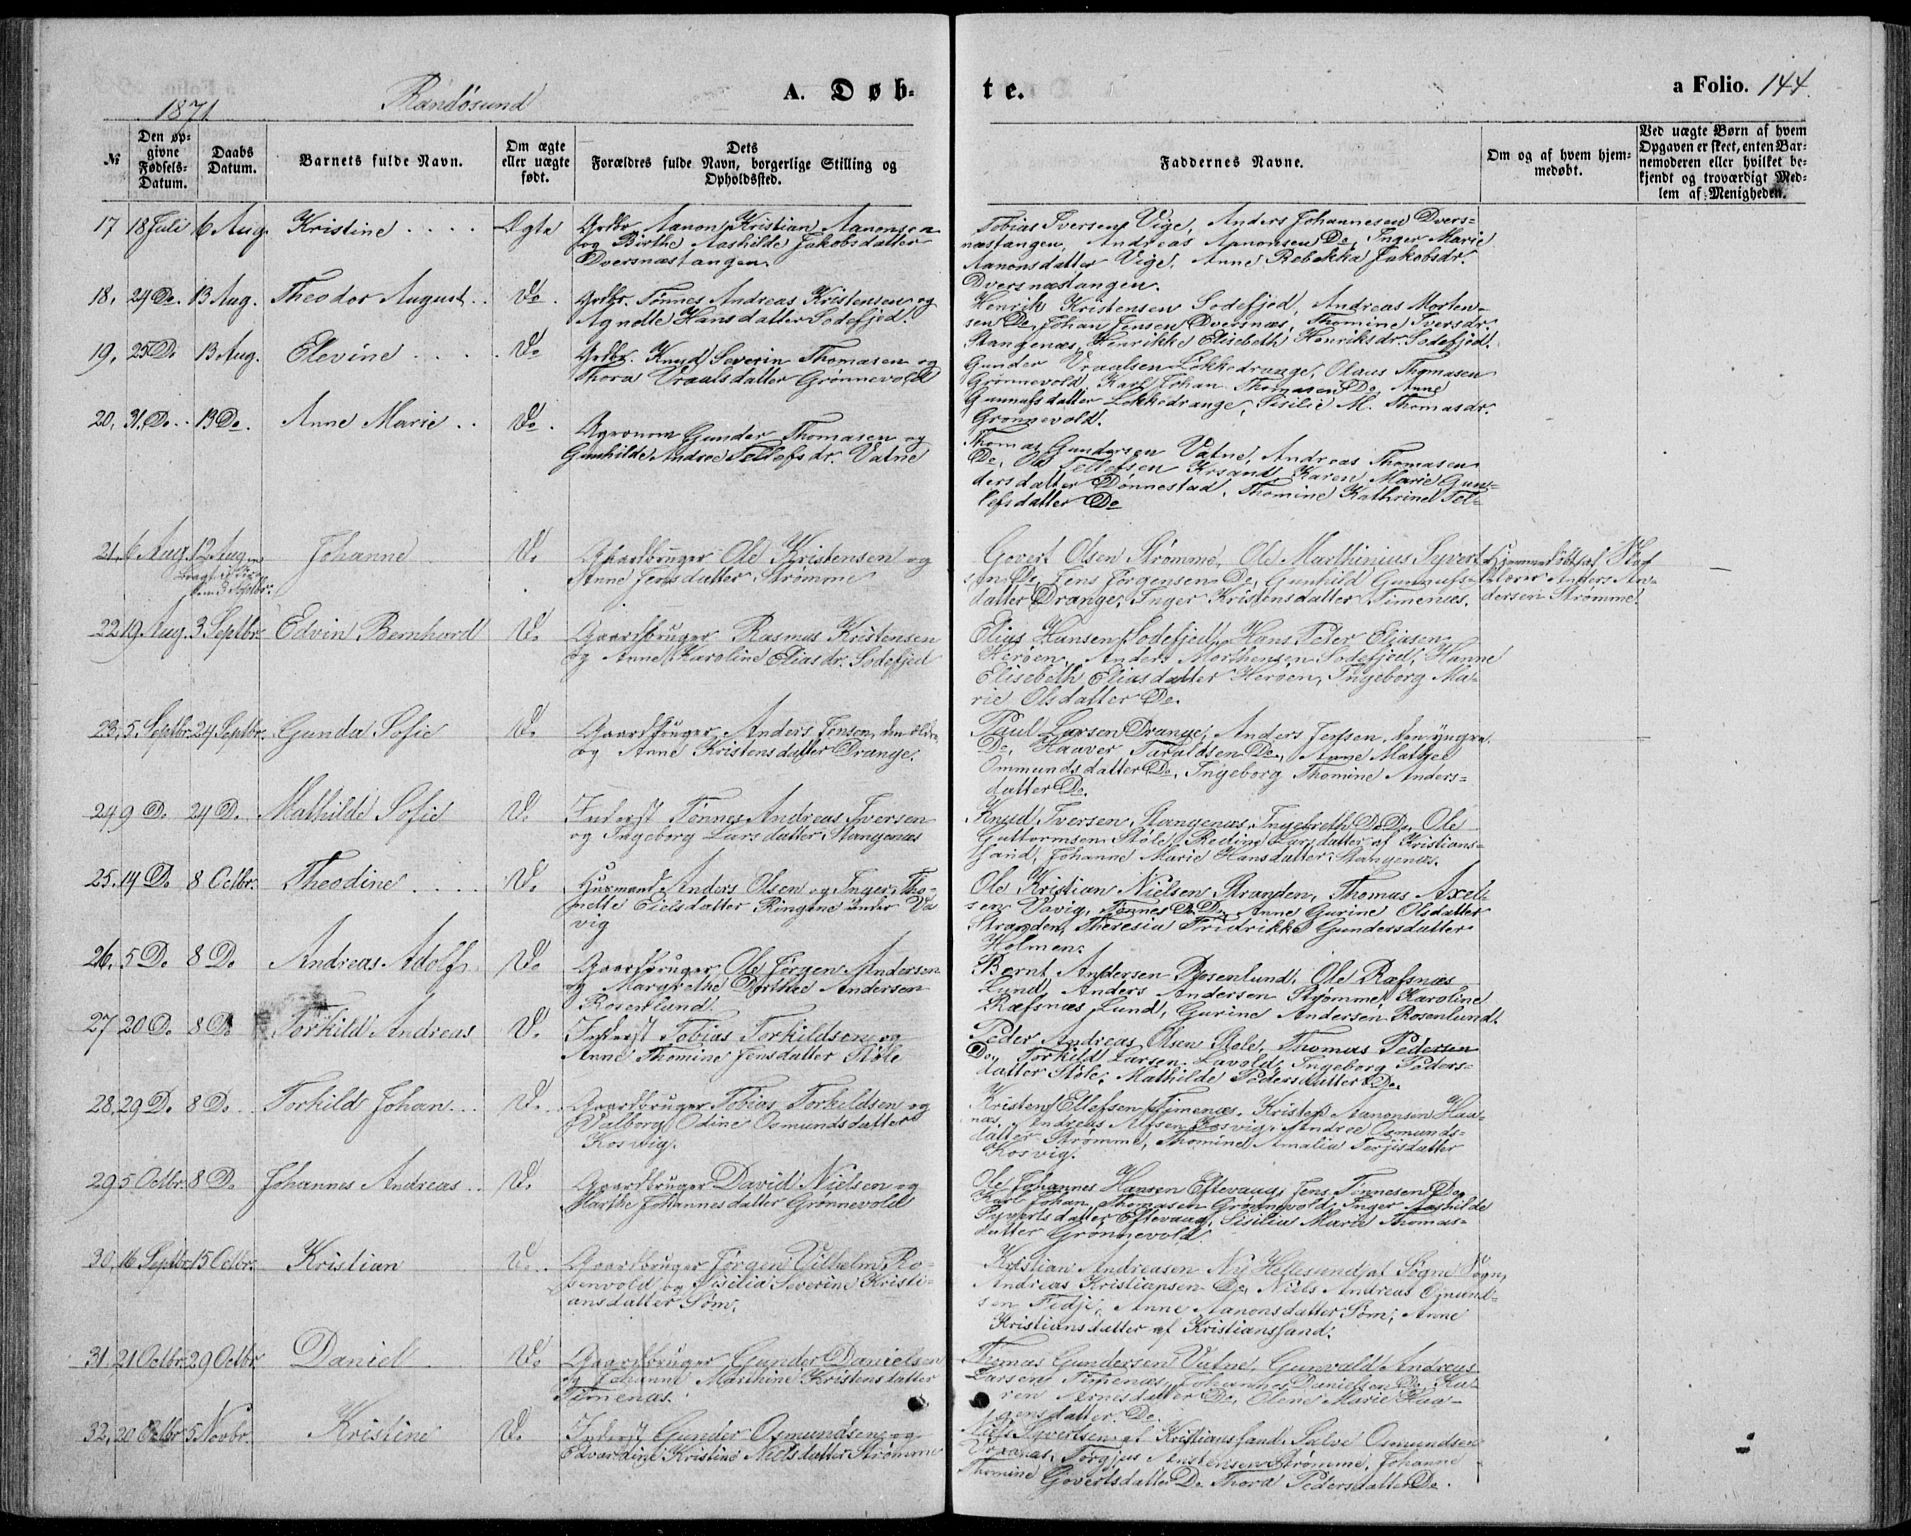 1871.
Randøsund
A. Døb-
te.
a Folio. 144.
№
Den op-
givne
Fødsels-
Datum.
Daabs
Datum.
Barnets fulde Navn.
Om ægte
eller uægte
født.
Dets
Forældres fulde Navn, borgerlige Stilling og
Opholdssted.
Faddernes Navne.
Om og af hvem hjem-
medøbt.
Ved uægte Børn af hvem
Opgaven er skeet, enten Bar-
nemoderen eller hvilket be-
kjendt og troværdigt Med-
lem af Menigheden.
17 18 Juli 6 Aug. Kristine Ægte
Grdbr. Aanon Kristian Aanonsen
og Birthe Aashilde Jakobsdatter
Dversnæstangen
Tobias Iversen Vige, Anders Johannesen Dvers-
næstangen, Andreas Aanonsen Do, Inger Marie
Aanonsdatter Vige, Anne Rebekka Jakobsdr.
Dversnæstangen.
18, 24 Do. 13 Aug. Theodor August Do.
Grdbr. Tønnes Andreas Kristensen og
Agnette Hansdatter Sodefjed.
Henrik Kristensen Sodefjed, Andreas Morten-
sen Do, Johan Jensen Dversnæs, Thomine Iversdr.
Stangenæs, Henrikke Elisabeth Henriksdr. Sodefjed.
19, 25 Do 13 Aug. Elevine Do
Grdbr. Knud Severin Thomasen og
Thora Vraalsdatter Grønnevold
Gunder Vraalsen Løkkedrange, Olaus Thomasen
Grønnevold, Karl Johan Thomasen Do, Anne
Gunnufsdatter Løkkedrange, Sisilie M. Thomasdr.
Grønnevold.
20, 31. Do. 13 Do. Anne Marie Do.
Agronom Gunder Thomasen og
Gunhilde Andrea Tellefsdr. Vatne
Thomas Gundersen Vatne, Andreas Thomasen
Do, Ole Tellefsen Krsand, Karen Marie Gun-
dersdatter Dønnestad, Thomine Kathrine Tel-
lefsdatter Do
21, 6 Aug. 12 Aug. Johanne Do
Gaardbruger Ole Kristensen og
Anne Jensdatter Strømme
Govert Olsen Strømme, Ole Marthinius Syvert-
sen Do, Jens Jørgensen Do, Gunhild Gunnufs-
datter Drange, Inger Kristensdatter Timenæs.
Hjemmedøbt af
Anders An-
dersen Strømme.
22 19 Aug. 3 Septbr. Edvin Bernhard Do
Gaardbruger Rasmus Kristensen
og Anne Karoline Eliasdr. Sodefjed
Elias Hansen Sodefjed, Hans Peder Eliasen
Herøen, Anders Morthensen Sodefjed, Hanne
Elisebeth Eliasdatter Herøen, Ingeborg Ma-
rie Olsdatter Do.
23, 5. Septbr. 24 Septbr. Gunda Sofie Do
Gaardbruger Anders Jensen den ældre
og Anne Kristensdatter Drange.
Paul Larsen Drange, Anders Jensen den yngre
Do, Haaver Taraldsen Do, Anne Mathea
Ommundsdatter Do, Ingeborg Thomine Anders-
datter Do.
24 9 Do 24 Do Mathilde Sofie Do
Inderst Tønnes Andreas Iversen
og Ingeborg Larsdatter Stangenæs
Knud Iversen Stangenæs, Ingebreth Do Do, Ole
Guttormsen Støle, Redine Larsdatter af Kristian-
sand, Johanne Marie Hansdatter Stangenæs.
25. 14 Do 8 Octbr. Theodine Do
Husmand Anders Olsen og Inger Tho-
nette Eielsdatter Ringene under Vaa-
vig
Ole Kristian Nielsen Stranden, Thomas Axel-
sen Vavig, Tønnes Do Do, Anne Gurine Olsdatter
Stranden, Theresia Fridrikke Gundersdatter
Holmen.
26, 5 Do 8 Do Andreas Adolf Do
Gaardbruger Ole Jørgen Andersen
og Margrethe Dorthea Andersen
Rosenlund
Bernt Andersen Rosenlund, Ole Ræfsnæs
Lund, Anders Andersen Strømme, Karoline
Ræfsnæs Lund, Gurine Andersen Rosenlund.
27 20 Do 8 Do Torkild Andreas Do
Inderst Tobias Torkildsen og
Anne Thomine Jensdatter Støle
Peder Andreas Olsen Støle, Thomas Pedersen
Do, Torkild Larsen Lavold, Ingeborg Peders-
datter Støle, Mathilde Pedersdatter Do.
28, 29 Do 8 Do Torkild Johan Do
Gaardbruger Tobias Torkildsen og
Valborg Odine Osmundsdatter
Kosvig.
Kristen Ellefsen Timenæs, Kristen Aanonsen Haa-
næs, Andreas Alfsen Kosvig, Andrea Osmunds-
datter Strømme, Thomine Amalia Terjisdatter
Kosvig.
29 5 Octbr. 8 Do Johannes Andreas Do
Gaardbruger David Nielsen og
Marthe Johannesdatter Grønnevold
Ole Johannes Hansen Eftevaag, Jens Tønnesen Do,
Karl Johan Thomasen Grønnevold, Inger Aashilde
Syvertsdatter Eftevaag, Sisilia Marie Thomas-
datter Grønnevold.
30, 16 Septbr. 15 Octbr. Kristian Do
Gaardbruger Jørgen Vilhelm Ro-
senvold og Sisilia Severine Kristi-
ansdatter Søm,
Kristian Andreasen Ny Hellesund af Søgne Sogn,
Andreas Kristiansen Do, Niels Andreas Osmund-
sen Fidje, Anne Aanonsdatter Søm, Anne
Kristiansdatter af Kristianssand.
31, 21 Octbr. 29 Octbr. Daniel Do
Gaardbruger Gunder Danielsen
og Johanne Marthine Kristensdatter
Timenæs.
Thomas Gundersen Vatne, Gunvald Andreas
Larsen Timenæs, Johannes Danielsen Do, Ka-
ren Arnesdatter Do, Olene Marie Haa-
gensdatter Do.
32, 20 Octbr. 5 Novbr. Kristine Do
Inderst Gunder Osmundsen og
Edvardine Kristine Nielsdatter Strømme
Niels Syvertsen af Kristianssand, Salve Osmundsen
Torgjus Anstensen Strømme, Johanne
Thomine Govertsdatter Do Thora Pedersdatter Do.